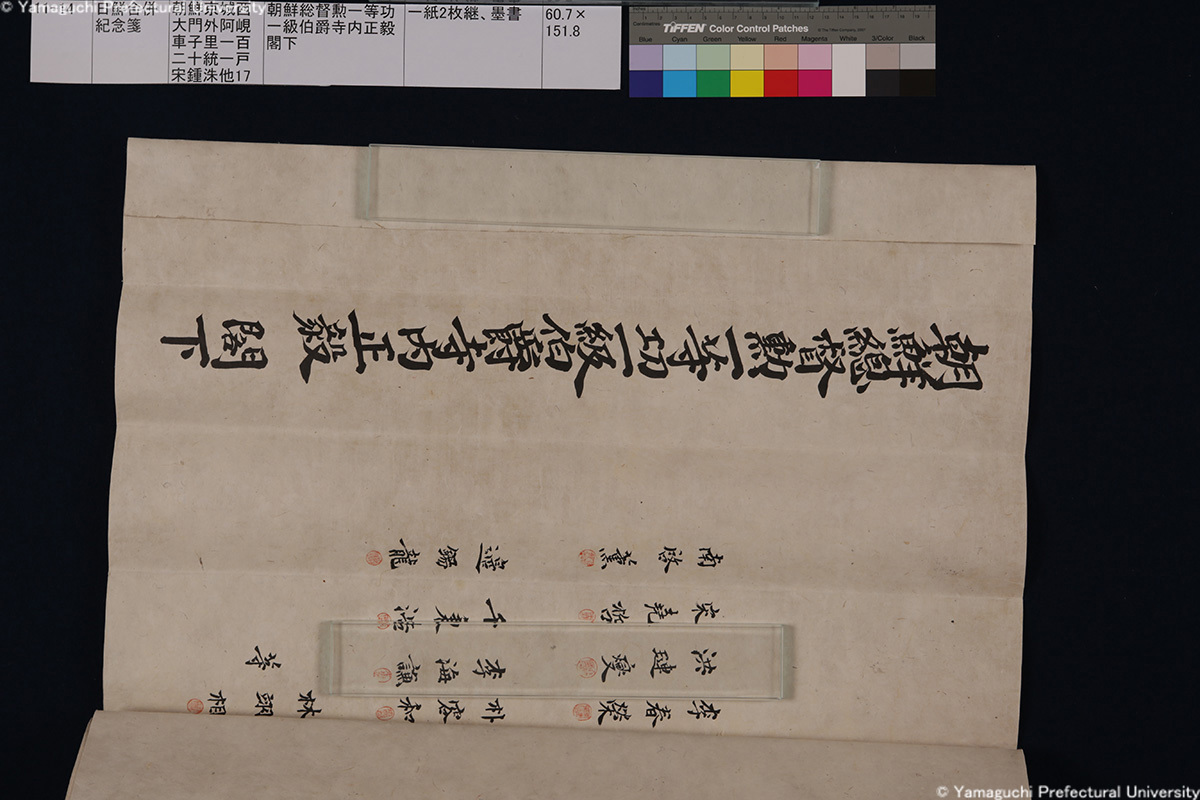 © Yamaguchi Prefectural University
紀念箋
大門外阿峴
車子里一百
二十統一戸
宋鍾洙他17
朝鮮総督勲一等功
一級伯爵寺内正毅
閣下
一紙2枚継、墨書
60.7×
151.8
TIFFEN Color Control Patches
© The Tiffen Company, 2007
Centimetres
Blue Cyan Green Yellow Red Magenta White 3/Color Black
朝鮮總督勳一等功一級伯爵寺內正毅閣下
南啓薰
宋堯
洪璉燮
李春榮
錫龍
千秉浩
李海讜
朴啓和
林相
等
© Yamaguchi Prefectural University